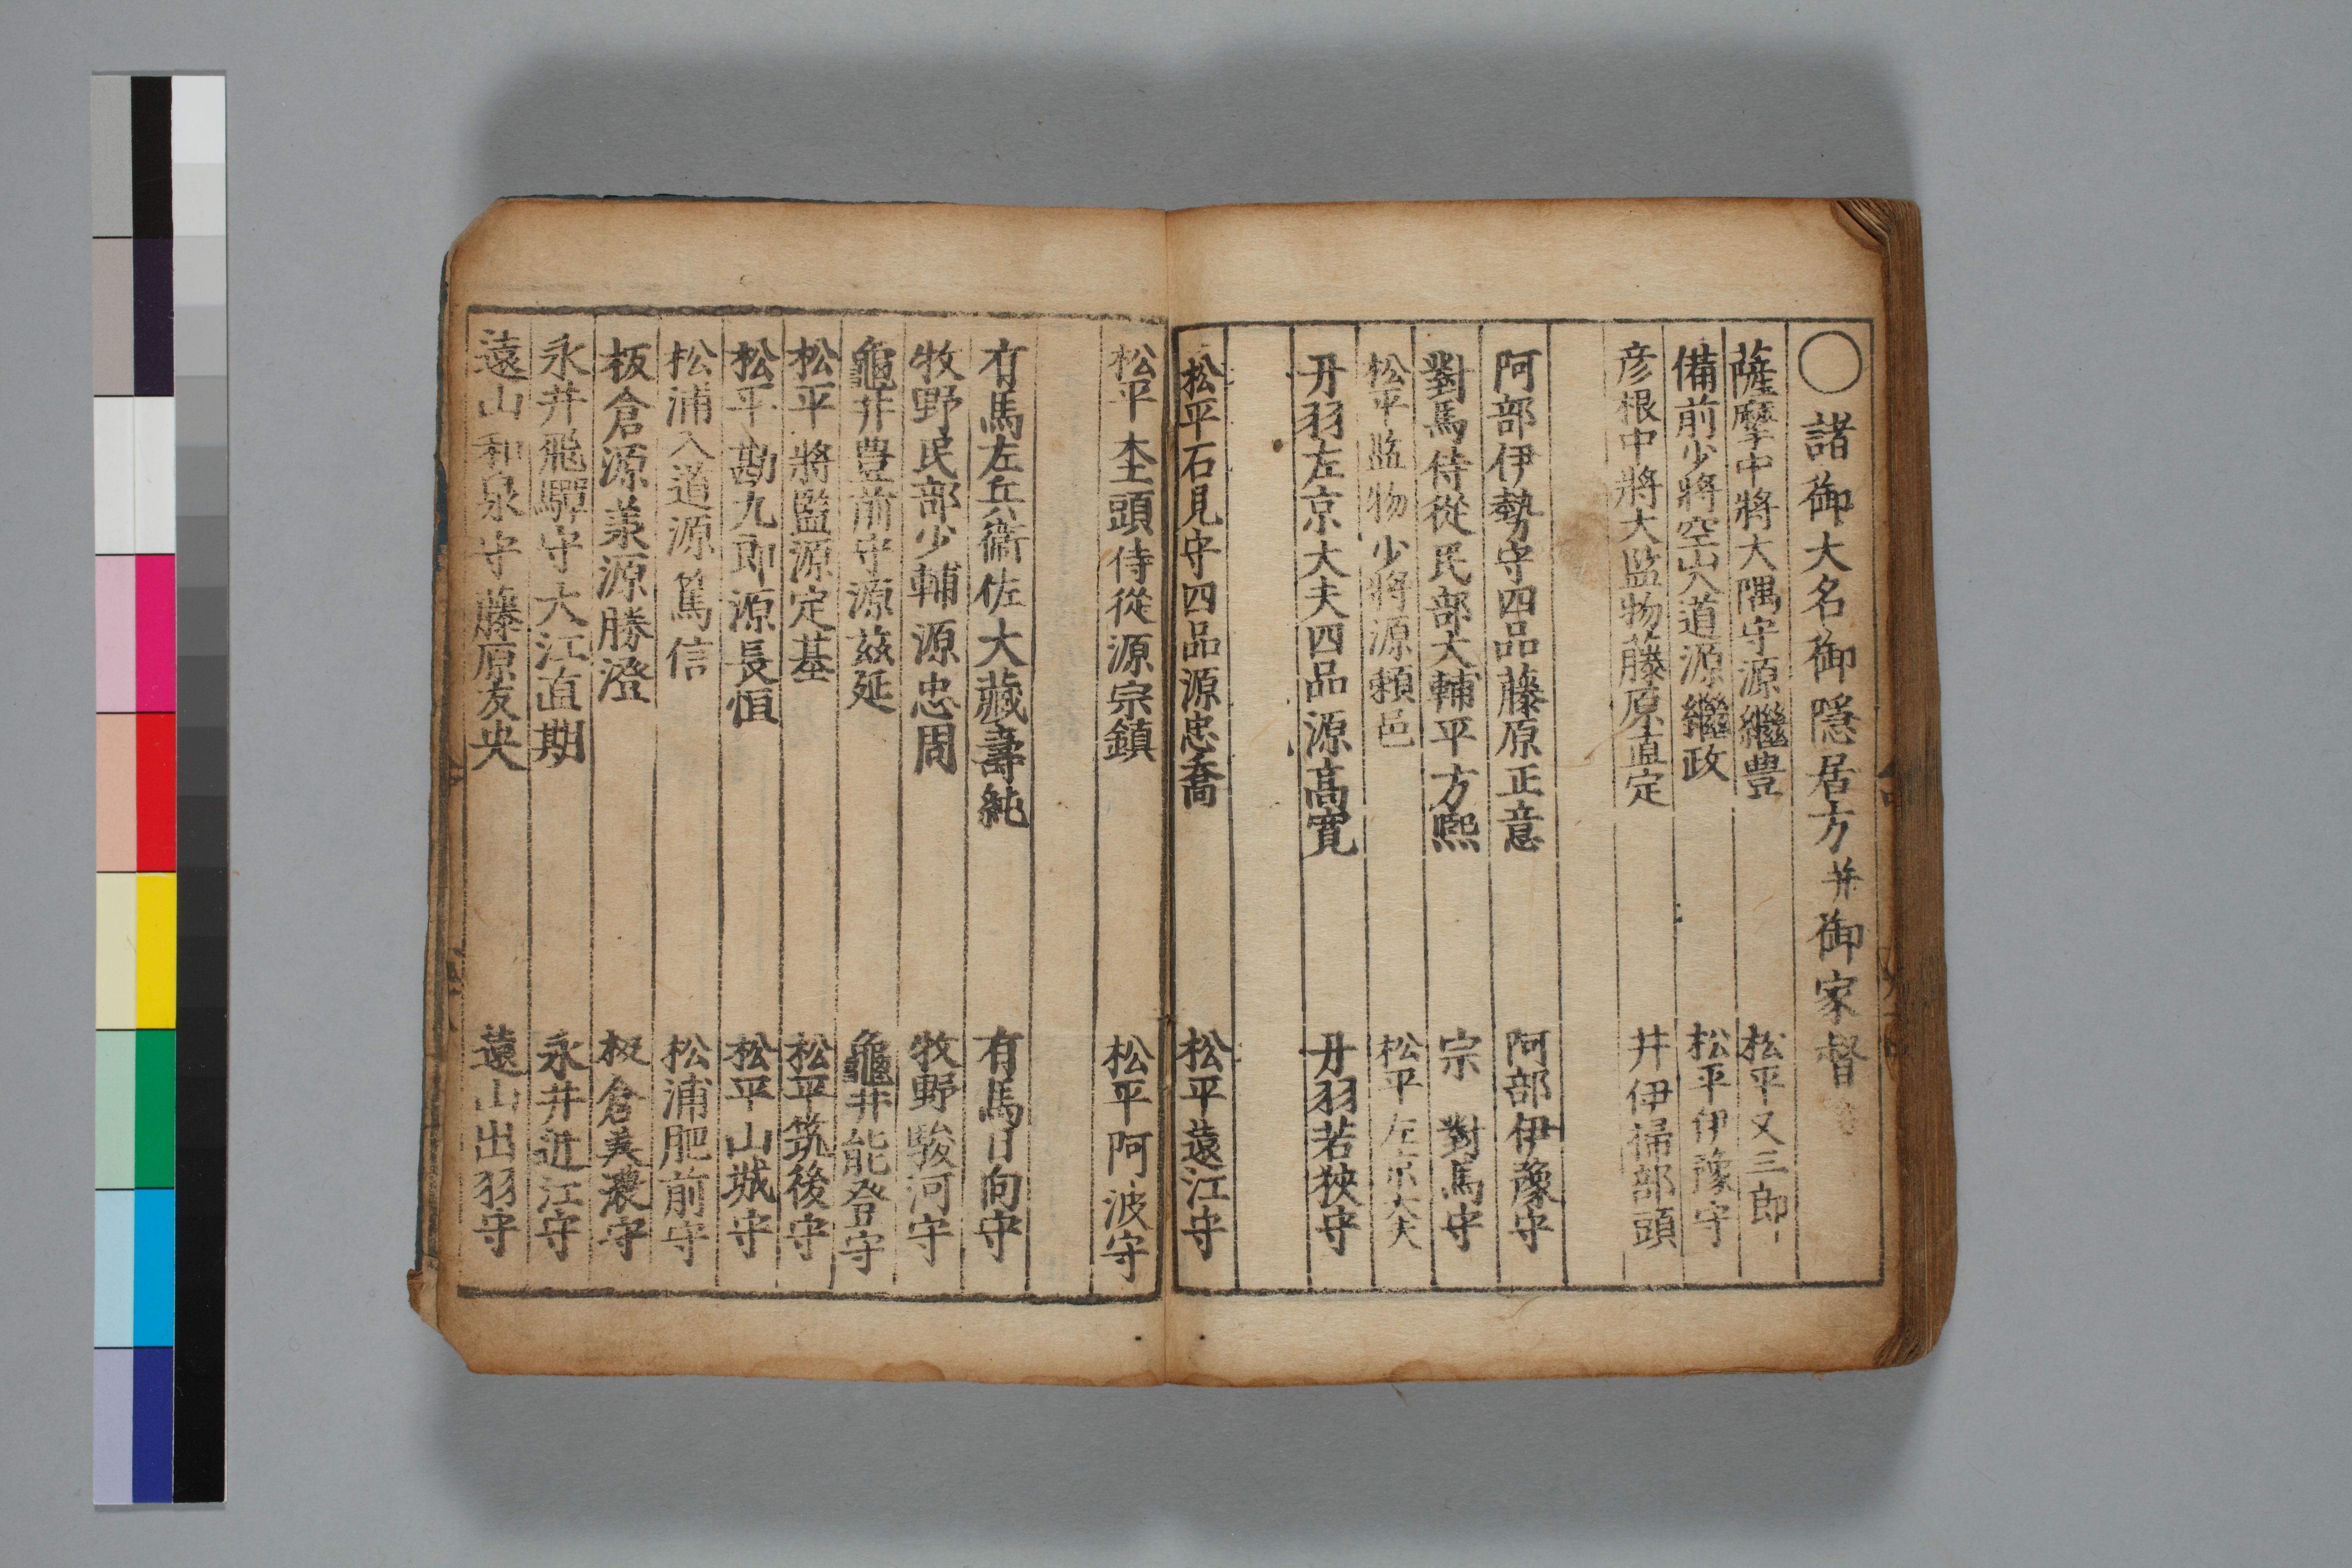 〇諸御大名御隠居方并御家督
薩摩中將大隅守源繼豊 松平又三郎
備前少將空山入道源繼政 松平伊豫守
彦根中將大監物藤原直定 井伊掃部頭
阿部伊勢守四品藤原正意 阿部伊豫守
對馬侍從民部大輔平方熈 宗對馬守
松平監物少將源頼邑 松平左京大夫
丹羽左京大夫四品源高寛 丹羽若狹守
松平石見守四品源忠喬 松平遠江守
松平杢頭侍從源宗鎮 松平阿波守
有馬左兵衞佐大藏壽純 有馬日向守
牧野民部少輔源忠周 牧野駿河守
龜井豊前守源茲延 龜井能登守
松平將監源定基 松平筑後守
松平勘九郎源長恒 松平山城守
松浦入道源篤信 松浦肥前守
板倉源義源勝澄 板倉美濃守
永井飛驒守大江直期 永井近江守
遠山和泉守藤原友央 遠山出羽守